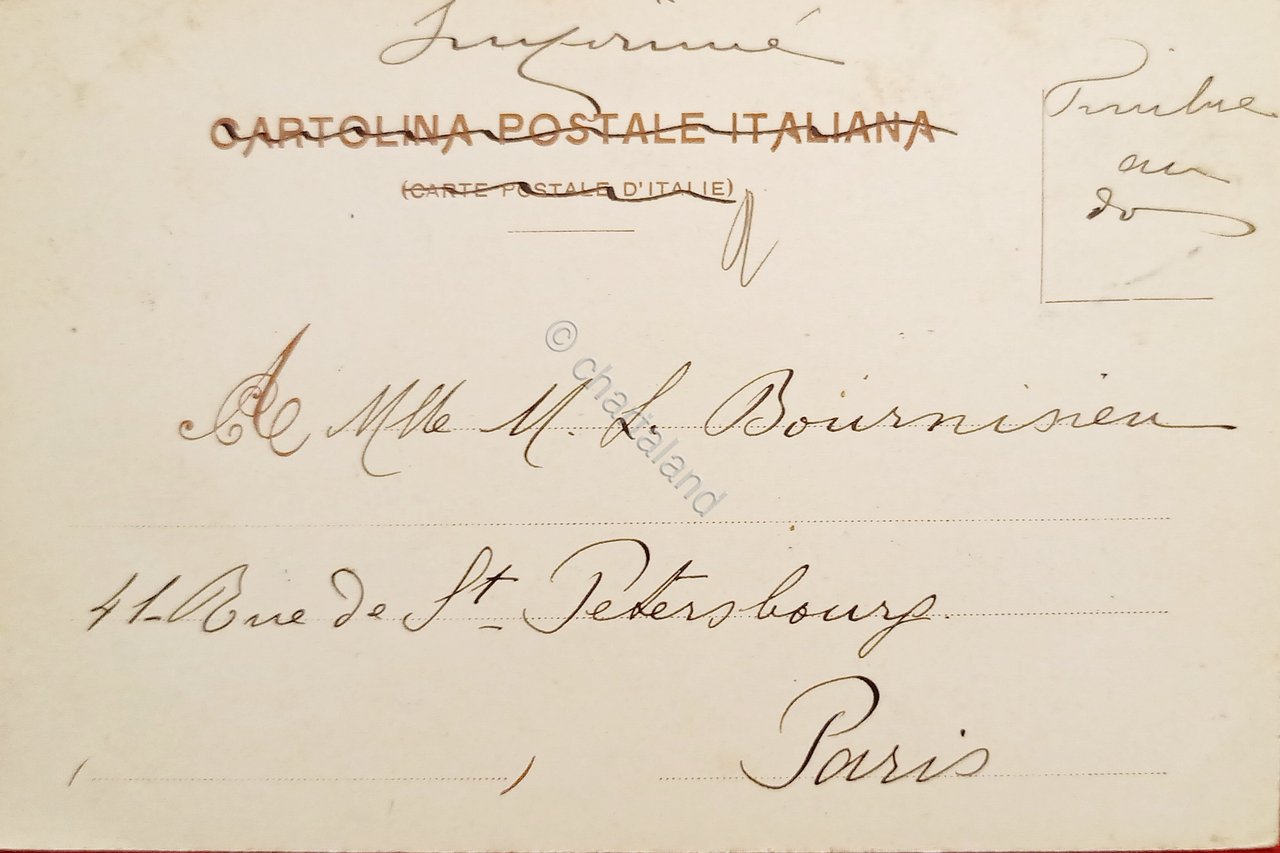 Imprimé
CARTOLINA POSTALE ITALIANA
(CARTE POSTALE D'ITALIE)
Timbre
au
dos
A Mlle M. L. Bournisien
41 - Rue de St Petersbourg.
Paris
© chartaland